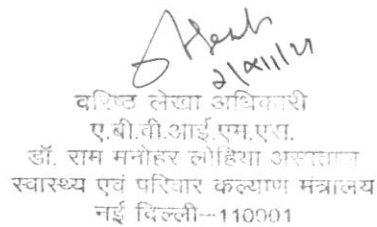 वरिष्ठ लेखा अधिकारी
ए.बी.वी.आई.एम.एस.
डॉ. राम मनोहर लोहिया अस्पताल
स्वास्थ्य एवं परिवार कल्याण मंत्रालय
नई दिल्ली–110001